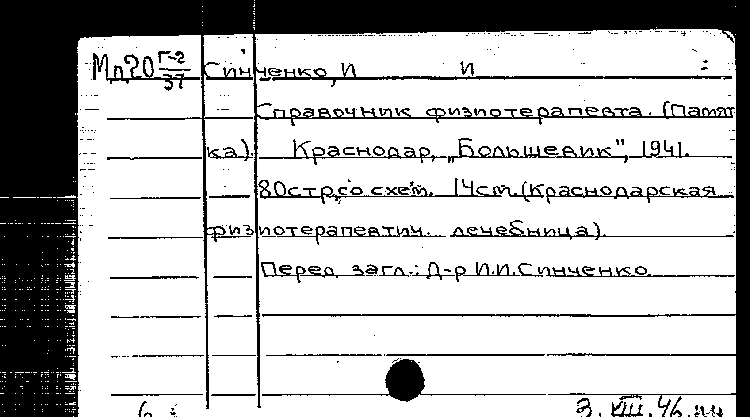 Мл20 Г-2/37 Синченко, И И :
Справочник физиотерапевта. (Памят
ка). Краснодар, „Большевик", 1941.
80стр,со схем. 14см.(Краснодарская
физиотерапевтич. лечебница).
Перед загл.: Д-р И.И.Синченко.
3.VIII.46.